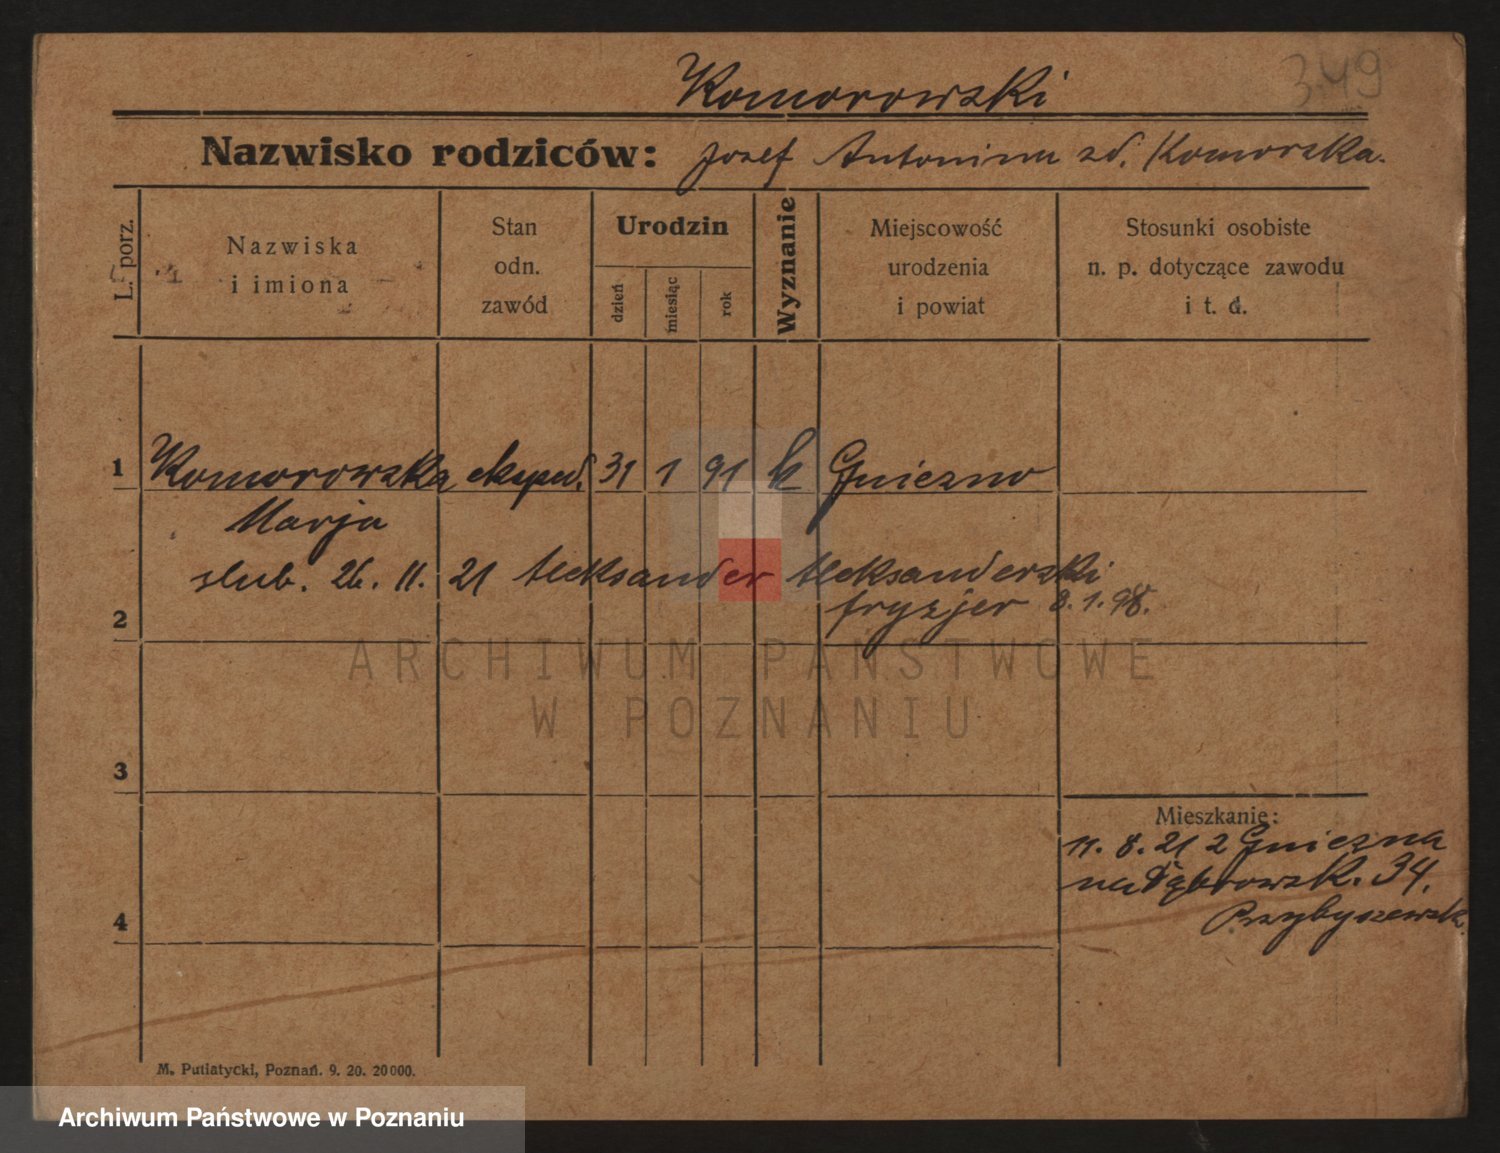 349
Komorowski
Nazwisko rodziców: Jozef Antonina zd. Komorska.
L. porz.
Nazwiska i imiona
Stan odn. zawód
Urodzin
dzień
miesiąc
rok
Wyznanie
Miejscowość urodzenia i powiat
Stosunki osobiste n. p. dotyczące zawodu i t. d.
1 Komorowska eksped. 31 1 91 k Gniezno
Marja
slub. 26. 11. 21 Aleksander Aleksanderski
fryzjer 8. 1. 98.
2
ARCHIWUM PAŃSTWOWE
W POZNANIU
3
Mieszkanie:
11. 8. 21 z Gniezna
na Dąbrowsk. 34.
Przybyszewsk.
4
M. Putiatycki, Poznań. 9. 20. 20000.
Archiwum Państwowe w Poznaniu